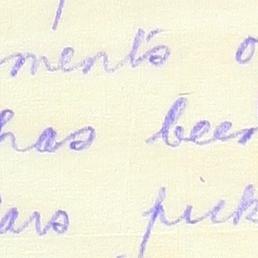 ments o
has been
ars pick